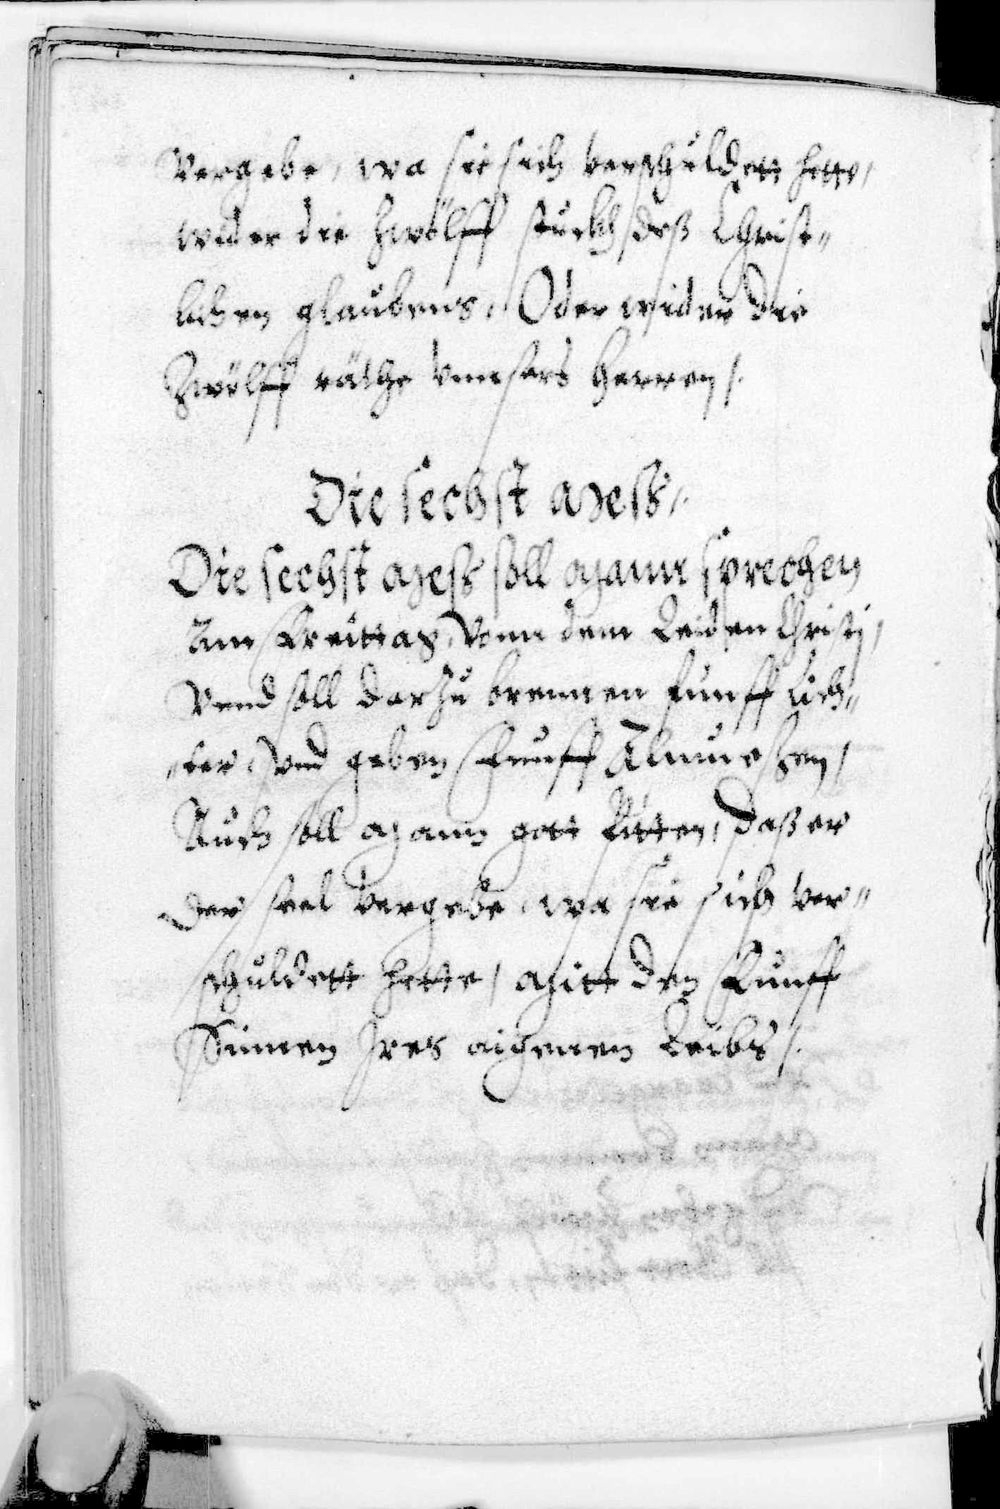 Vergebe, wa sie sich verschuldett hette,
wider die Zwölff stuckh, deß Christ-
lichen glaubens, Oder wider die
Zwölff räthe vnnsers Herren /.
Die sechst Mess /.
Die sechst Mess soll Mann sprechen
Am Freittag, Vonn dem Leiden Christj,
Vnnd soll darzu brennen funff liech-
ter, Vnd geben Funff Almuesen,
Auch soll Mann gott bitten, daß er
der seel vergebe, wa sie sich ver-
schuldett hette, Mitt den Funff
Sinnen Jres aigenen Leibs /.